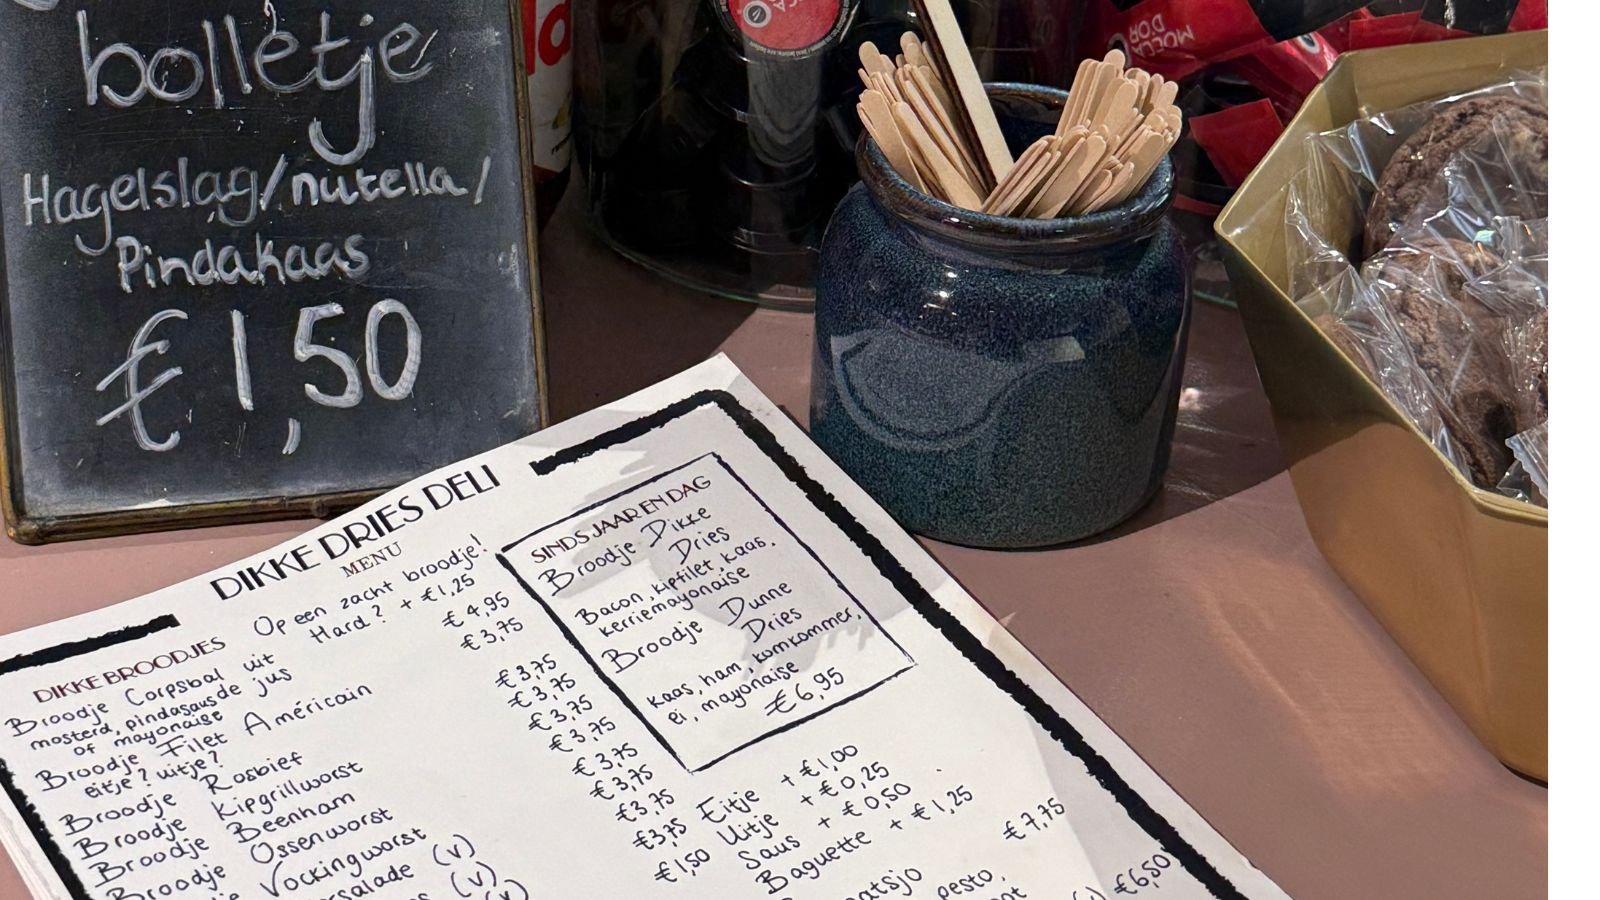 bolletje
Hagelslag/nutella/
Pindakaas
€1,50
DIKKE DRIES DELI
MENU
Op een zacht broodje!
Hard? + €1,25
DIKKE BROODJES
Broodje Corpsbal uit
mosterd, pindasaus de jus
of mayonaise
Broodje Filet Américain
eitje? uitje?
Broodje Rosbief
Broodje Kipgrillworst
Broodje Beenham
Broodje Ossenworst
Vockingworst
salade (v)
(v)
(v)
€4,95
€3,75
€3,75
€3,75
€3,75
€3,75
€3,75
€3,75
€3,75
€3,75
€1,50
SINDS JAAR EN DAG
Broodje Dikke
Dries
Bacon, kipfilet, kaas,
kerriemayonaise
Broodje Dunne
Dries
kaas, ham, komkommer,
ei, mayonaise
€6,95
Eitje + €1,00
Uitje + €0,25
Saus + €0,50
Baguette + €1,25
€7,75
pesto,
€6,50
MOCCA
D'OR